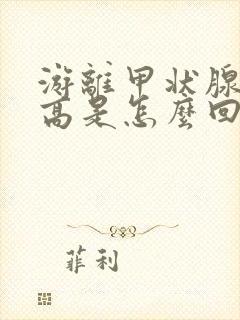 游離甲状腺
高是怎麼回
菲利